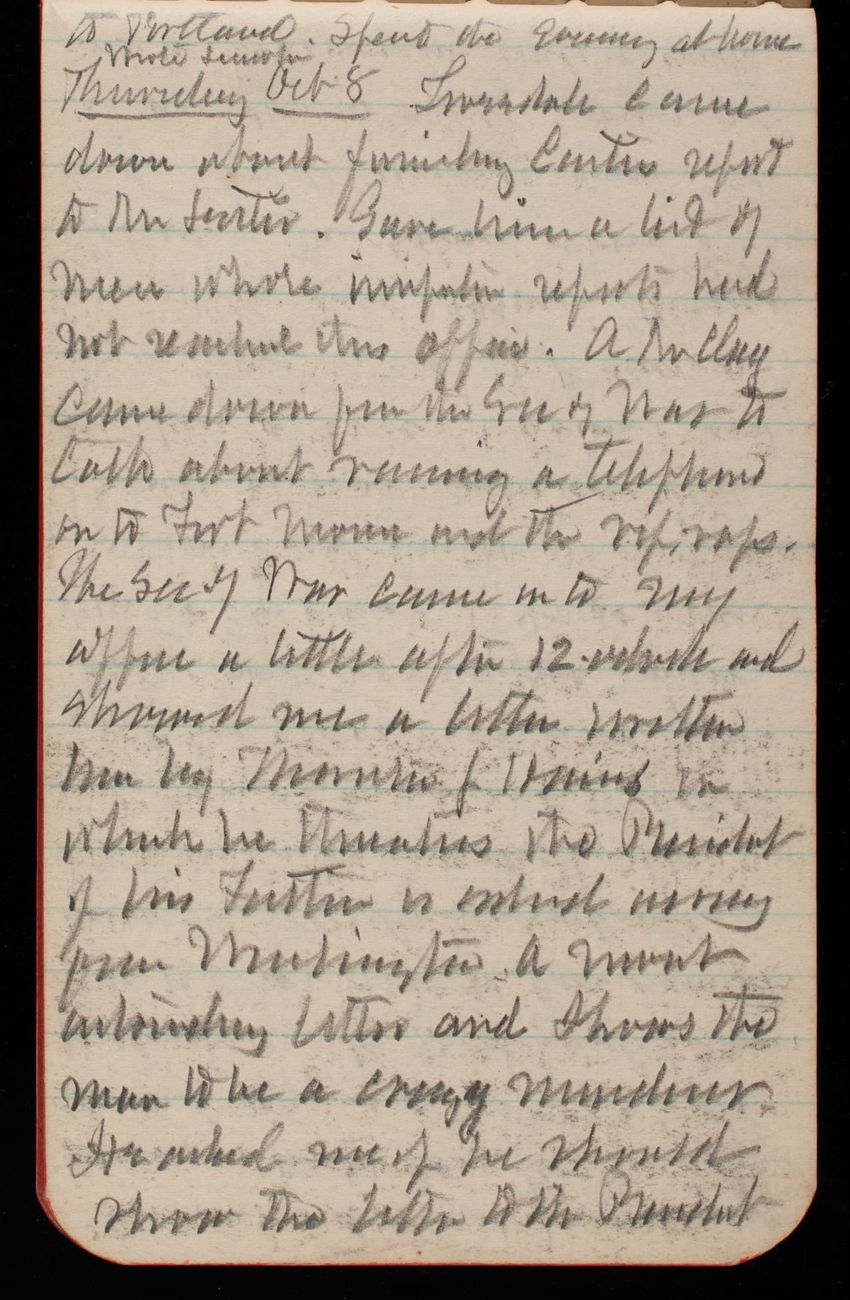 to Portland. Spent the Evening at home
Wrote
Thursday Oct 8 Truesdale came
down about furnishing Carter report
to the Senator. Gave him a list of
men whose inspection reports had
not reached this office. A Mr Clay
came down from the Sec of War to
talk about running a telephone
on to Fort Monroe and the rip, raps.
The Sec of War came in to my
office a little after 12 oclock and
showed me a letter written
him by Thornton J Hains in
which he threatens the President
if his Father is ordered away
from Washington. A most
astounding letter and shows the
man to be a crazy murderer.
He asked me if he should
show the letter to the President